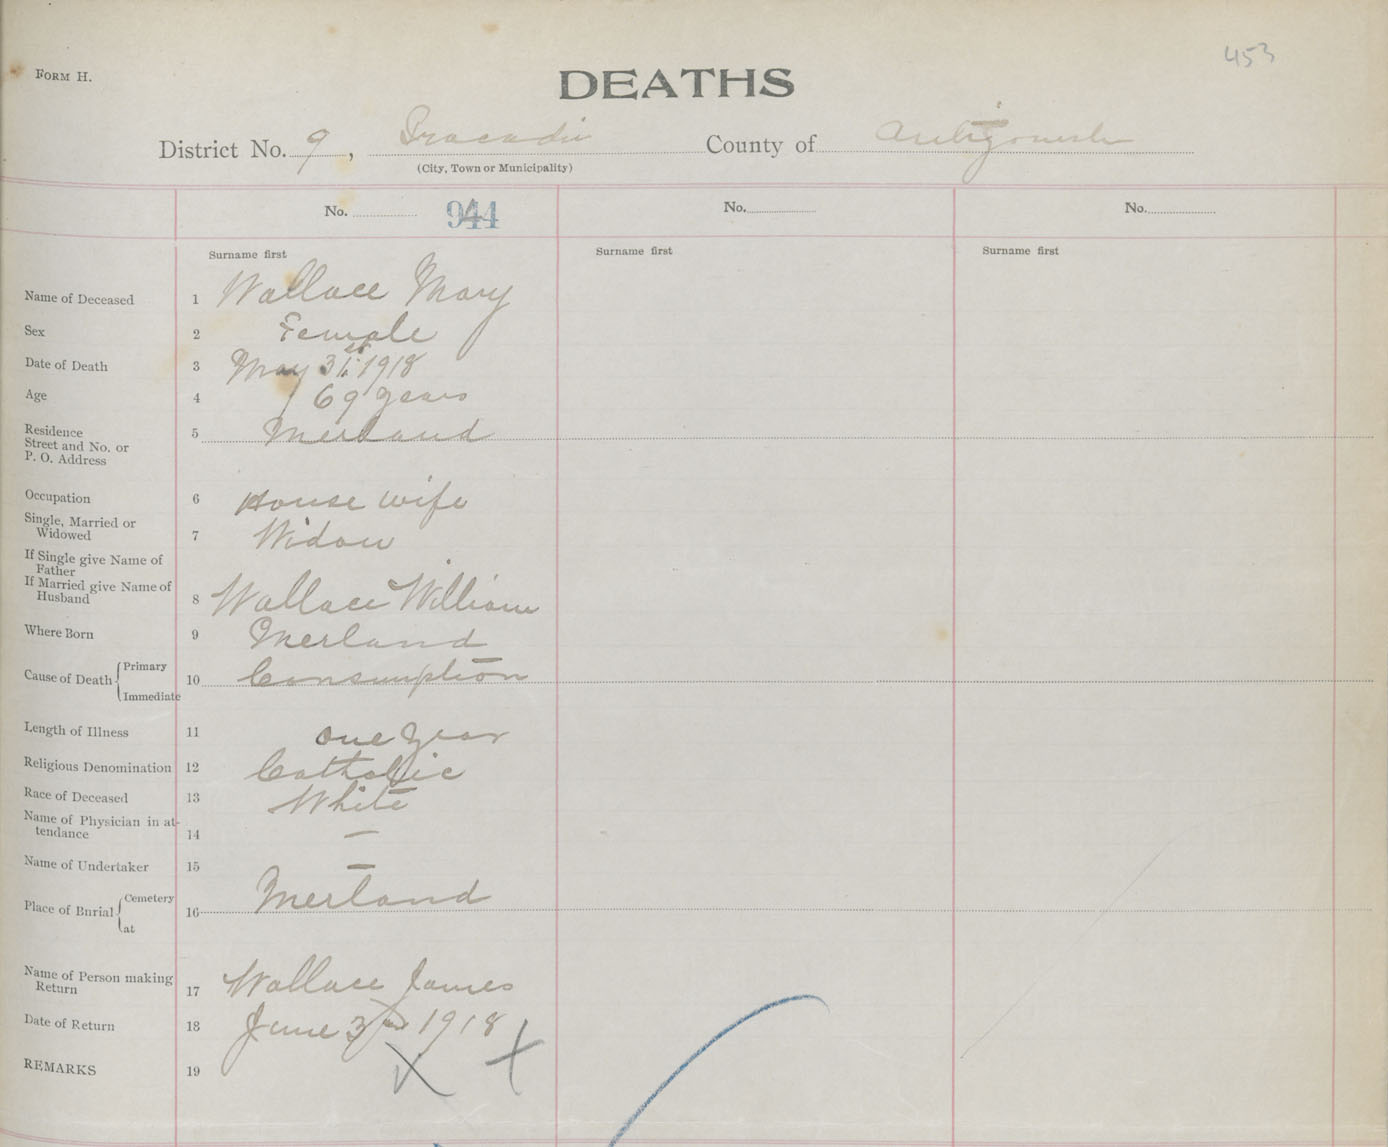 453
FORM H.
DEATHS
District No. 9, Tracadie County of Antigonish
(City, Town or Municipality)
No. 944 No. No.
Surname first Surname first Surname first
Name of Deceased 1 Wallace Mary
Sex 2 Female
Date of Death 3 May 31st 1918
Age 4 69 years
Residence
Street and No. or
P. O. Address 5 Merland
Occupation 6 House wife
Single, Married or
Widowed 7 Widow
If Single give Name of
Father
If Married give Name of
Husband 8 Wallace William
Where Born 9 Merland
Cause of Death Primary
Immediate 10 Consumption
Length of Illness 11 one year
Religious Denomination 12 Catholic
Race of Deceased 13 White
Name of Physician in at-
tendance 14 —
Name of Undertaker 15 —
Place of Burial Cemetery
at 16 Merland
Name of Person making
Return 17 Wallace James
Date of Return 18 June 3rd 1918
REMARKS 19 X X